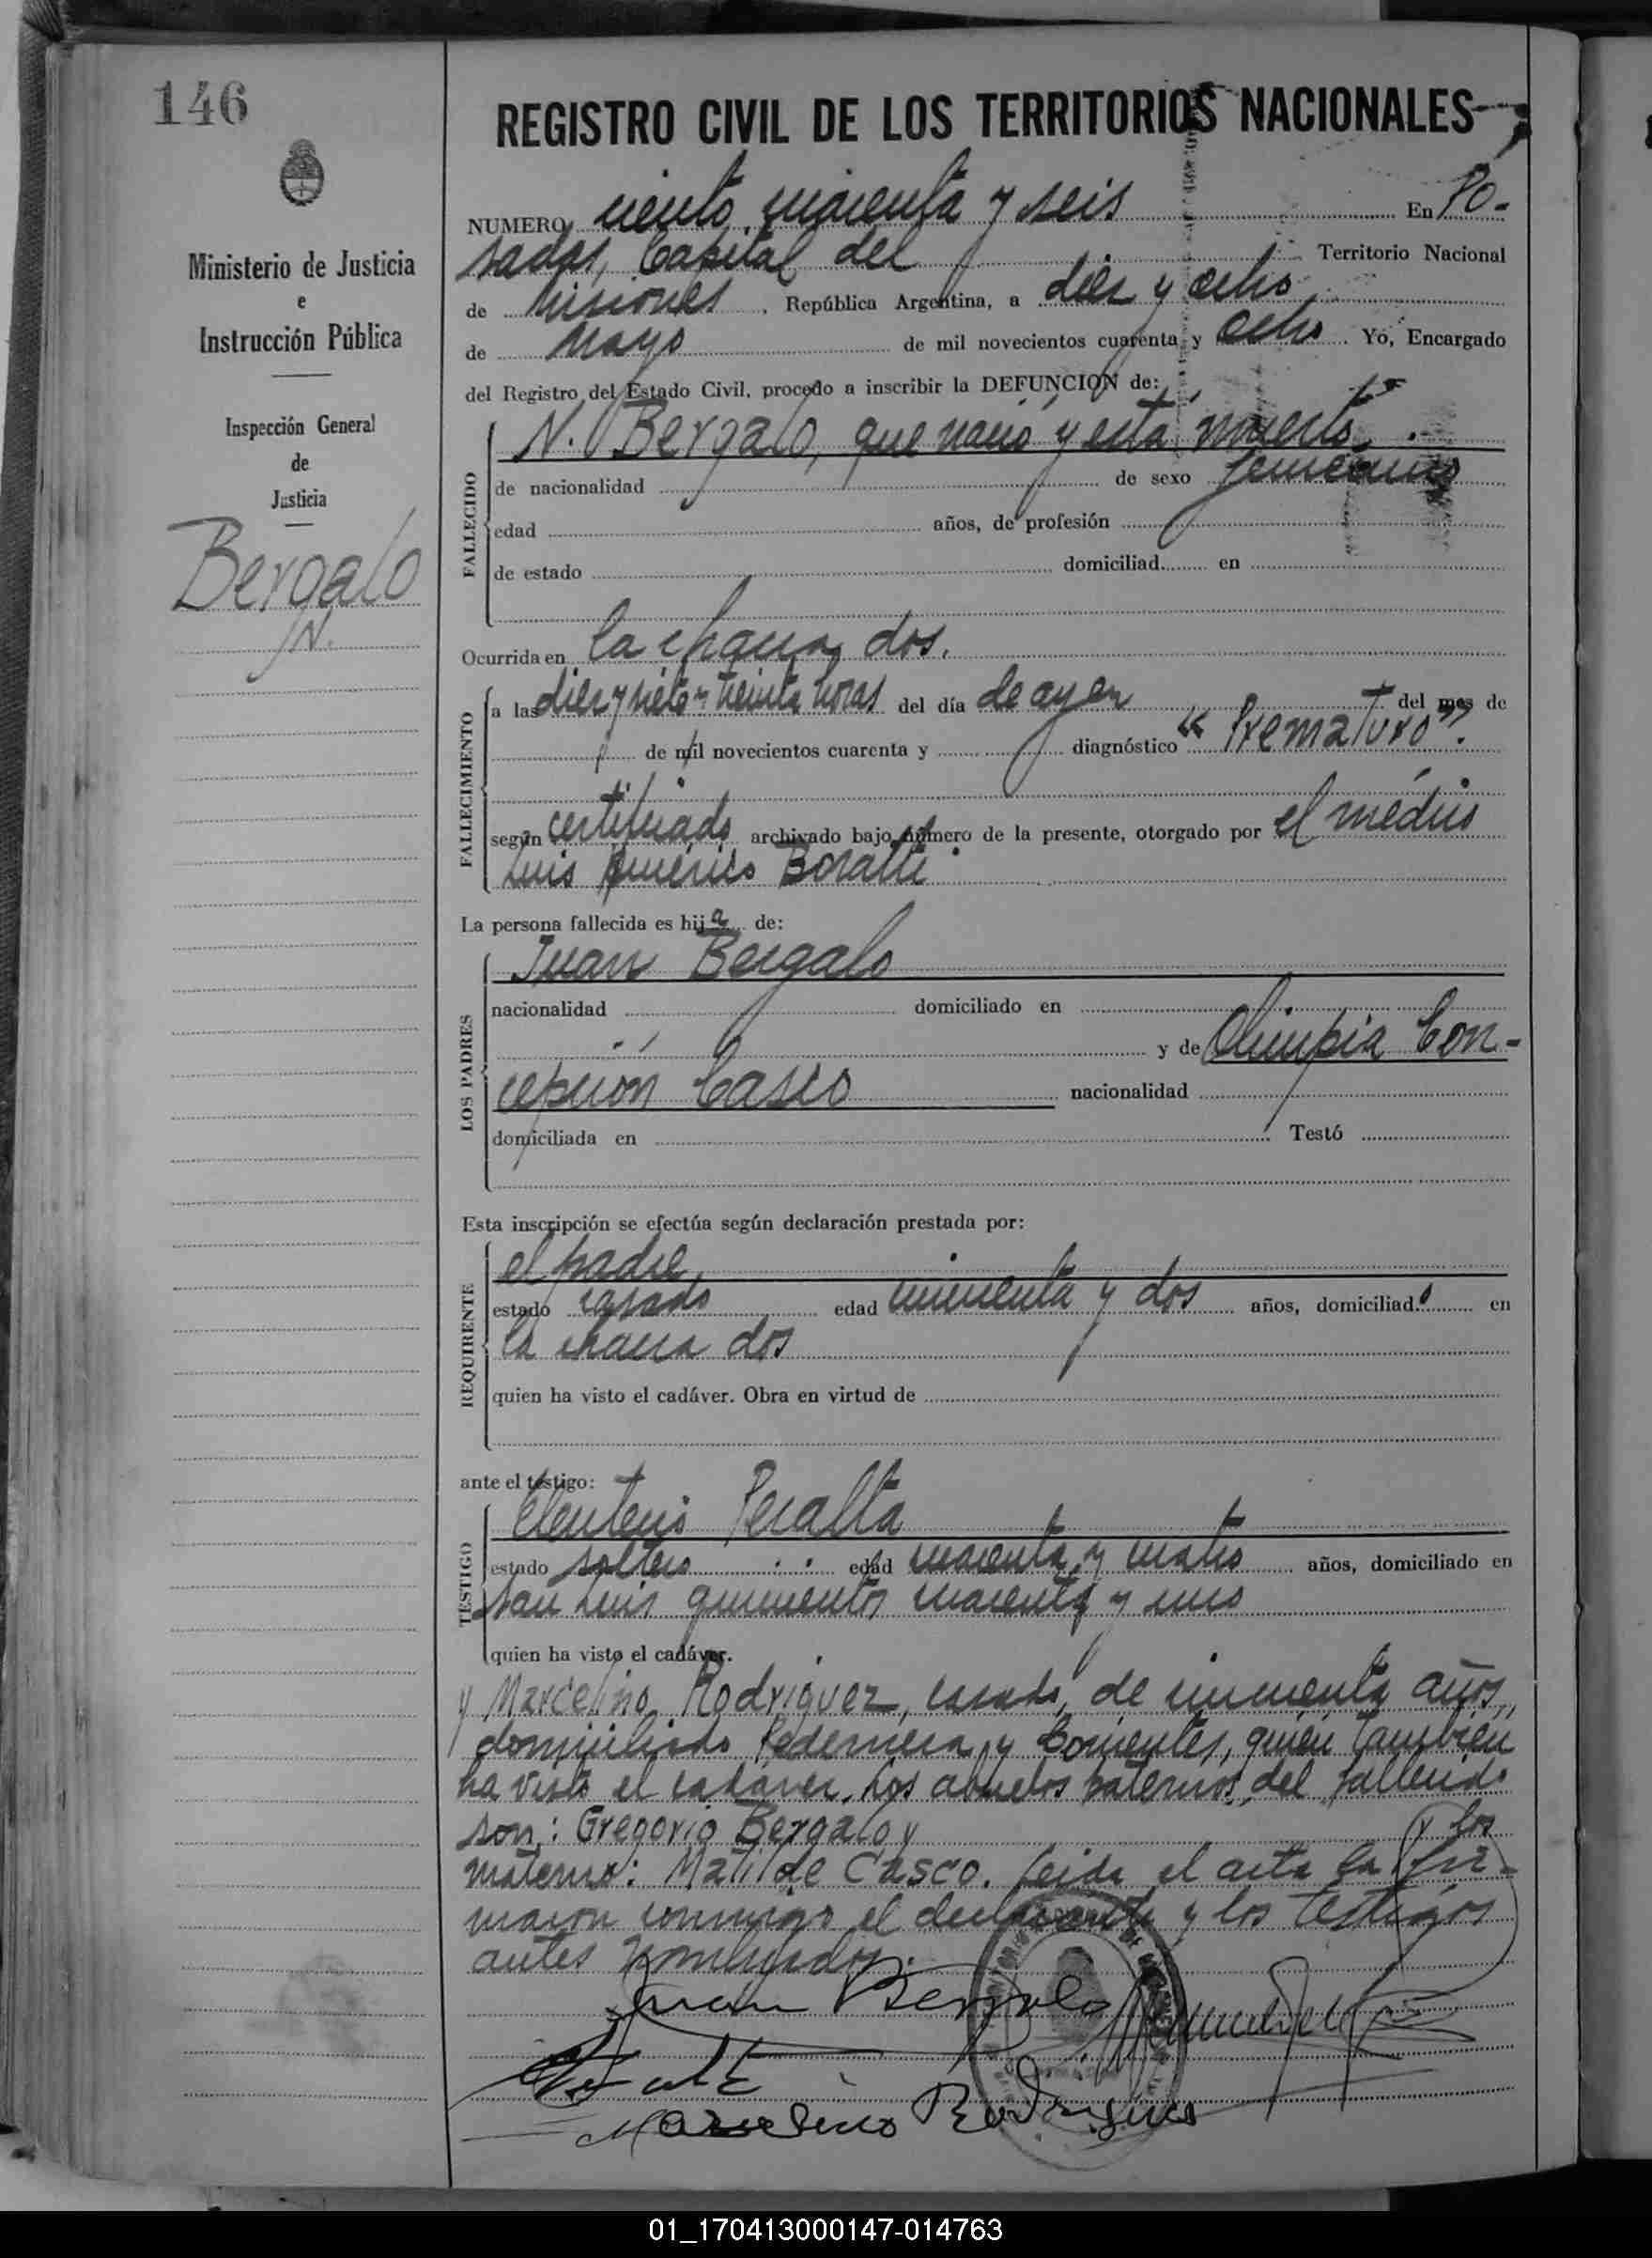 146
REGISTRO CIVIL DE LOS TERRITORIOS NACIONALES
Ministerio de Justicia
e
Instrucción Pública
Inspección General
de
Justicia
Bergalo
N.
NUMERO ciento cuarenta y seis En Po-
sadas, Capital del Territorio Nacional
de Misiones, República Argentina, a diez y ocho
de Mayo de mil novecientos cuarenta y ocho. Yo, Encargado
del Registro del Estado Civil, procedo a inscribir la DEFUNCION de:
FALLECIDO
N. Bergalo, que nació y está muerto.
de nacionalidad de sexo femenino
edad años, de profesión
de estado domiciliad en
Ocurrida en la chacra dos.
FALLECIMIENTO
a las diez y siete y treinta horas del día de ayer del mes de
de mil novecientos cuarenta y diagnóstico "Prematuro".
según certificado archivado bajo número de la presente, otorgado por el médico
Luis Américo Boratti.
La persona fallecida es hija de:
LOS PADRES
Juan Bergalo
nacionalidad domiciliado en
y de Olimpia Con-
cepción Casco nacionalidad
domiciliada en Testó
Esta inscripción se efectúa según declaración prestada por:
REQUIRENTE
el padre,
estado casado edad cincuenta y dos años, domiciliado en
la chacra dos
quien ha visto el cadáver. Obra en virtud de
ante el testigo:
TESTIGO
Eleuterio Peralta
estado soltero edad cuarenta y cuatro años, domiciliado en
San Luis quinientos cuarenta y uno
quien ha visto el cadáver.
y Marcelino Rodriguez, casado, de cincuenta años,
domiciliado Pedernera y Corrientes, quien también
ha visto el cadáver. Los abuelos paternos del fallecido
son: Gregorio Bergalo y los
materno: Matilde Casco. Leida el acta la fir-
maron conmigo el declarante y los testigos
antes nombrados.
Juan Bergalo
Marcelino Rodrigues
01_170413000147-014763